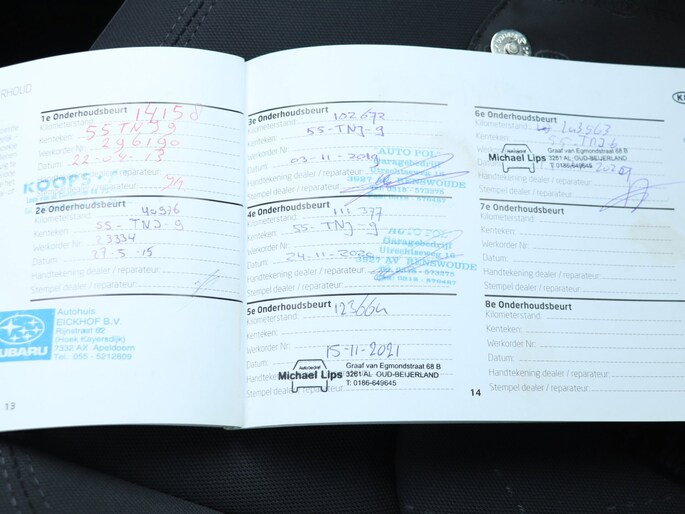 1e Onderhoudsbeurt
Kilometerstand: 14158
Kenteken: 55 TNJ 9
Werkorder Nr.: 296190
Datum: 22-04-13
KOOPS
2e Onderhoudsbeurt
Kilometerstand: 40976
Kenteken: 55-TNJ-9
Werkorder Nr.: 23334
Datum: 29.5.15
Handtekening dealer / reparateur:
Stempel dealer / reparateur:
SUBARU
Autohuis
EICKHOF B.V.
Rijnstraat 60
(Hoek Kayersdijk)
7332 AX Apeldoorn
Tel. 055 - 5212809
13
3e Onderhoudsbeurt
Kilometerstand: 102672
Kenteken: 55-TNJ-9
Werkorder Nr.:
Datum: 03-11-2019
Handtekening dealer / reparateur:
Stempel dealer / reparateur:
AUTO POL
Garagebedrijf
Utrechtseweg 16
3927 AV RENSWOUDE
4e Onderhoudsbeurt
Kilometerstand: 111.377
Kenteken: 55-TNJ-9
Werkorder Nr.:
Datum: 24-11-2020
Handtekening dealer / reparateur:
Stempel dealer / reparateur:
AUTO POL
Garagebedrijf
Utrechtseweg 16
3927 AV RENSWOUDE
5e Onderhoudsbeurt
Kilometerstand:
Kenteken:
Werkorder Nr.:
Datum: 15-11-2021
Stempel dealer / reparateur:
Michael Lips
Graaf van Egmondstraat 68 B
3261 AL OUD-BEIJERLAND
T: 0186-649645
14
6e Onderhoudsbeurt
Kilometerstand:
Kenteken:
Werkorder Nr.:
Datum:
Handtekening dealer / reparateur:
Stempel dealer / reparateur:
Michael Lips
Graaf van Egmondstraat 68 B
3261 AL OUD-BEIJERLAND
T: 0186-649645
7e Onderhoudsbeurt
Kilometerstand:
Kenteken:
Werkorder Nr.:
Datum:
Handtekening dealer / reparateur:
Stempel dealer / reparateur:
8e Onderhoudsbeurt
Kilometerstand:
Kenteken:
Werkorder Nr.:
Datum:
Handtekening dealer / reparateur:
Stempel dealer / reparateur: